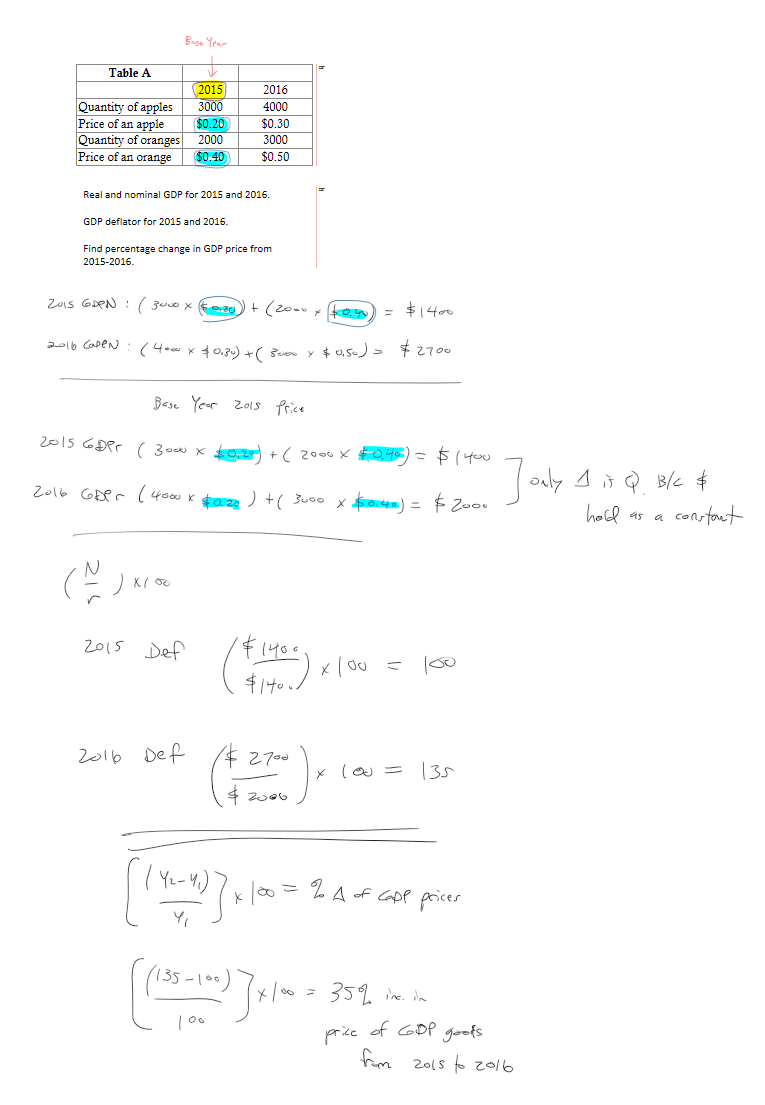 Base Year
Table A
2015 2016
Quantity of apples 3000 4000
Price of an apple $0.20 $0.30
Quantity of oranges 2000 3000
Price of an orange $0.40 $0.50
Real and nominal GDP for 2015 and 2016.
GDP deflator for 2015 and 2016.
Find percentage change in GDP price from
2015-2016.
2015 GDPN : (3000 x $0.20) + (2000 x $0.40) = $1400
2016 GDPN : (4000 x $0.30) + (3000 x $0.50) = $2700
Base Year 2015 Price
2015 GDPr (3000 x $0.20) + (2000 x $0.40) = $1400
2016 GDPr (4000 x $0.20) + (3000 x $0.40) = $2000
only Δ is Q. B/c $
hold as a constant
(N/r) x100
2015 Def ($1400/$1400) x 100 = 100
2016 Def ($2700/$2000) x 100 = 135
[(Y2-Y1)/Y1] x 100 = % Δ of GDP prices
[(135-100)/100] x 100 = 35% inc. in
price of GDP goods
from 2015 to 2016